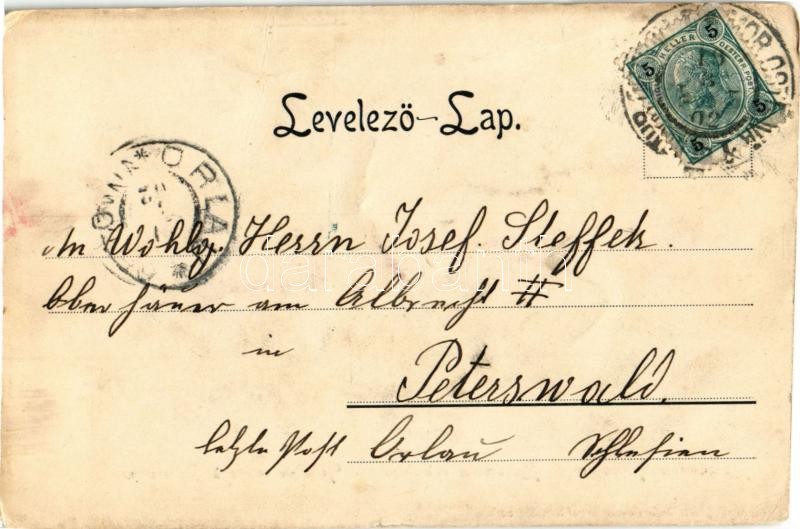 Levelező-Lap.
5 HELLER 5
5 5
ORLA
An Wohlg. Herrn Josef. Steffek.
Oberhäuer am Albrecht #
in
Peterswald.
letzte Post Orlau Schlesien
darabanth